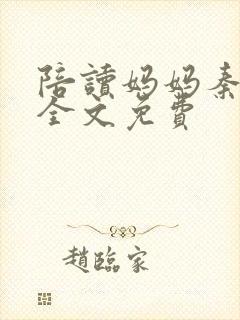 陪讀媽媽秦
全文免費
趙臨家